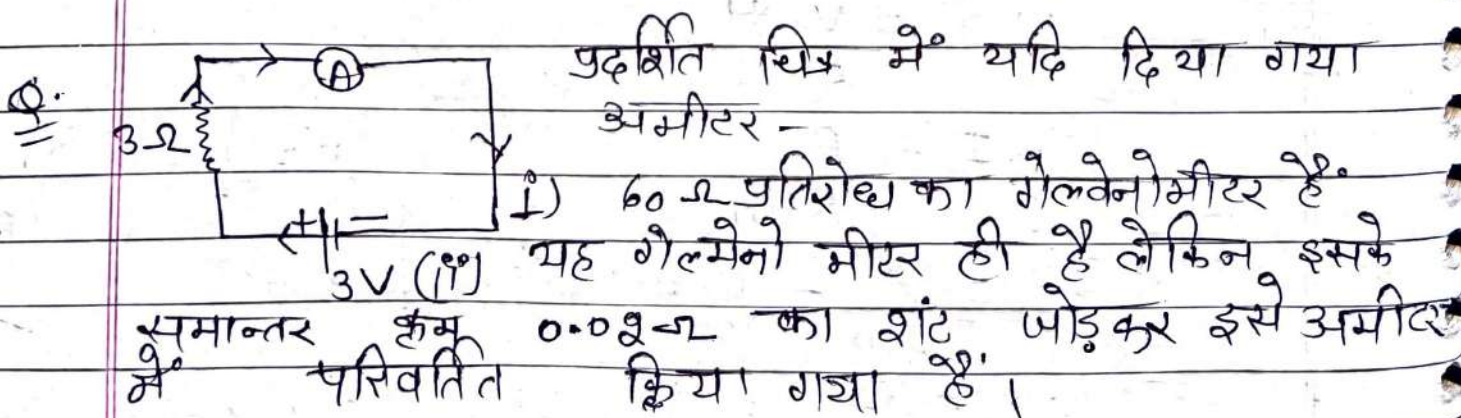 प्रदर्शित चित्र में यदि दिया गया
Q. अमीटर -
3Ω
A
i) 60 Ω प्रतिरोध का गेल्वेनोमीटर हैं
+ - यह गेल्मेनो मीटर ही है लेकिन इसके
3V (ii)
समान्तर क्रम 0.02Ω का शंट जोड़कर इसे अमीटर
में परिवर्तित किया गया हैं।